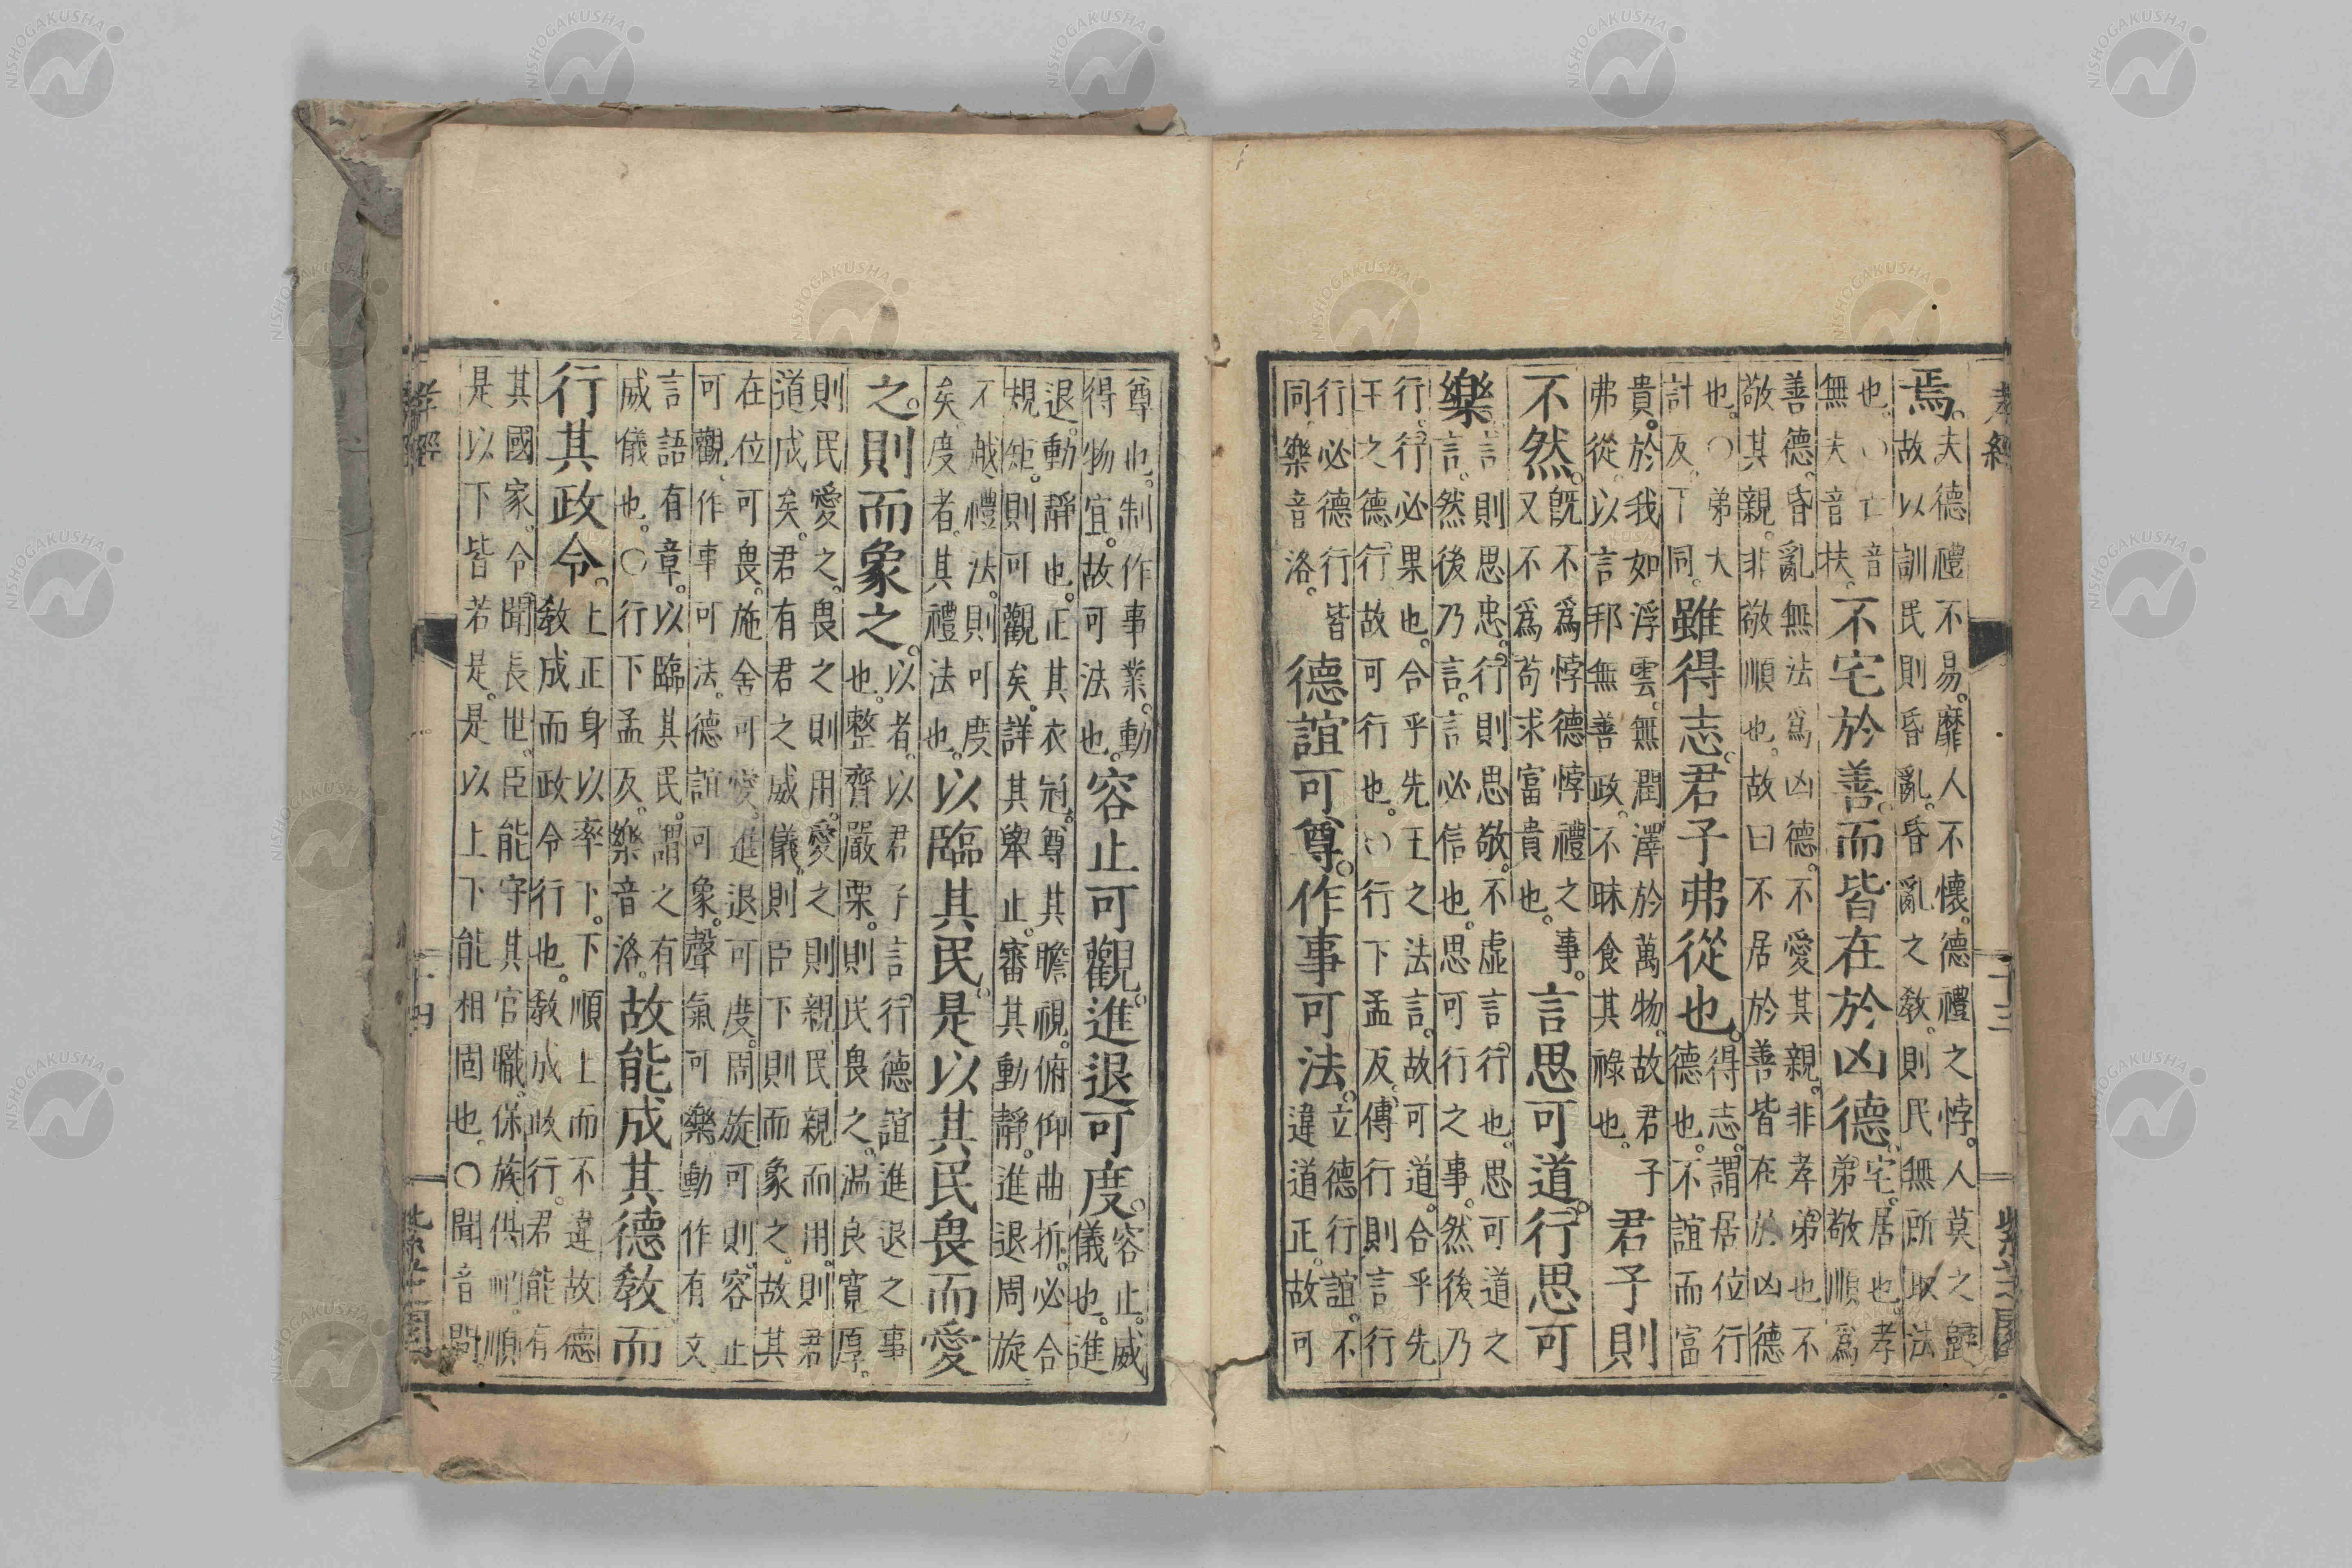 孝經 十三 紫芝園
焉。夫德禮不易。靡人不懷。德禮之悖。人莫之歸
故以訓民則昏亂。昏亂之敎。則民無所取法
也。〇亡音
無夫音扶。
不宅於善。而皆在於凶德。宅。居也。孝
弟敬順爲
善德。昏亂無法爲凶德。不愛其親。非孝弟也不
敬其親。非敬順也。故曰不居於善皆在於凶德
也。〇弟大
計反。下同。
雖得志。君子弗從也。得志。謂居位行
德也。不誼而富
貴。於我如浮雲。無潤澤於萬物。故君子
弗從以言邦無善政。不昧食其祿也。
君子則
不然。旣不爲悖德悖禮之事。
又不爲苟求富貴也。
言思可道。行思可
樂。言則思忠。行則思敬。不虛言行也。思可道之
言。然後乃言。言必信也。思可行之事。然後乃
行。行必果也。合乎先王之法言。故可道。合乎先
王之德行。故可行也。〇行下孟反。傳行則言行
行必德行皆
同。樂音洛。
德誼可尊。作事可法。立德行誼。不
違道正。故可
尊也。制作事業。動
得物宜。故可法也。
容止可觀。進退可度。容止。威
儀也。進
退。動靜也。正其衣冠。尊其瞻視。俯仰曲折。必合
規矩。則可觀矣。詳其舉止。審其動靜。進退周旋
不越禮法。則可度
矣。度者。其禮法也。
以臨其民。是以其民畏而愛
之。則而象之。以者。以君子言。行德誼進退之事
也。整齊嚴栗。則民畏之。温良寬厚。
則民愛之。畏之則用。愛之則親。民親而用。則君
道成矣。君有君之威儀。則臣下則而象之。故其
在位可畏。施舍可愛。進退可度。周旋可則。容止
可觀。作事可法。德誼可象。聲氣可樂。動作有文
言語有章。以臨其民。謂之有
威儀也。〇行下孟反。樂音洛。
故能成其德敎。而
行其政令。上正身以率下。下順上而不違故德
敎成而政令行也。敎成政行。君能有
其國家。令聞長世。臣能守其官職。保族供祀。順
是以下皆若是。是以上下能相固也。〇聞音問
孝經 十四 紫芝園
NISHOGAKUSHA